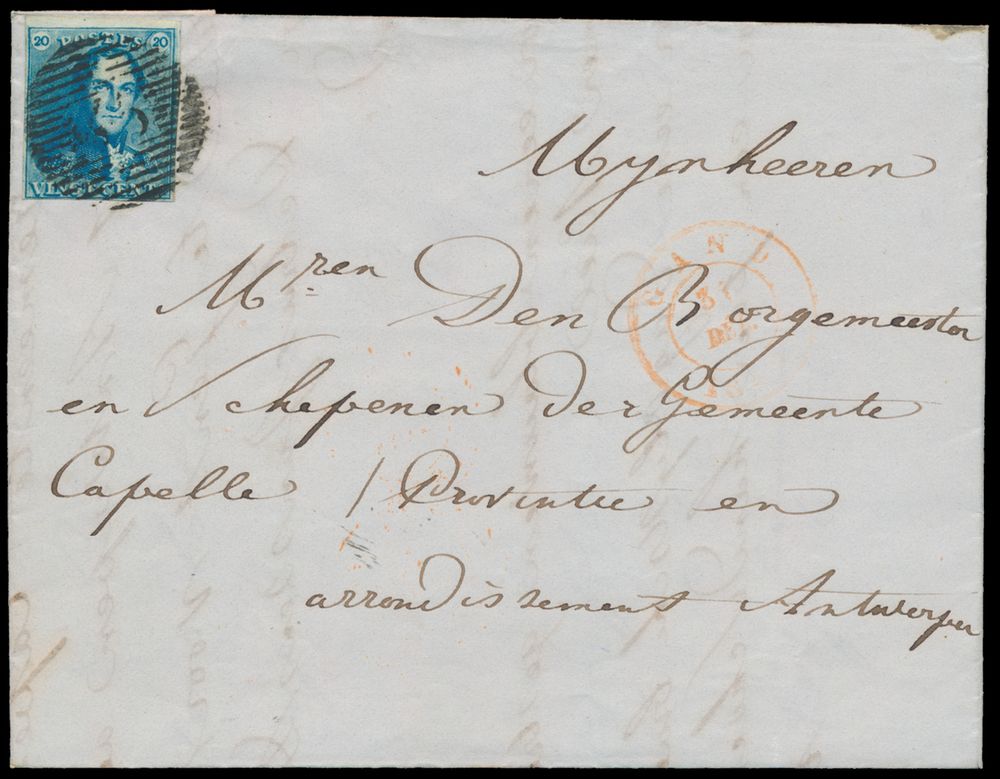 20 POSTES 20
VINGT CENT
Mynheeren
GAND
Mren Den Borgemeester
DE
en Schepenen der Gemeente
Capelle / Provintie en
arrondissement Antwerpen